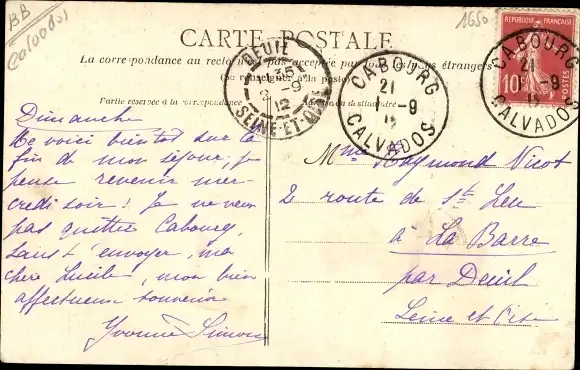 BB
Calvados
1650
CARTE POSTALE
La correspondance au recto n'est pas acceptée par tous les pays étrangers
(Se renseigner à la poste)
Partie réservée à la correspondance
Adresse du destinataire
RÉPUBLIQUE FRANÇAISE
10c
POSTES
DEUIL
35
2 -9
12
SEINE-ET-OISE
CABOURG
21
-9
12
CALVADOS
CABOURG
21
-9
12
CALVADOS
Dimanche
Me voici bientôt sur la
fin de mon séjour, je
pense revenir mer-
credi soir! Je ne veux
pas quitter Cabourg,
sans t'envoyer, ma
chère Lucile, mon bien
affectueux souvenir
Yvonne Simon
Mme Raymond Nicot
2 route de St Leu
à La Barre
par Deuil
Seine et Oise